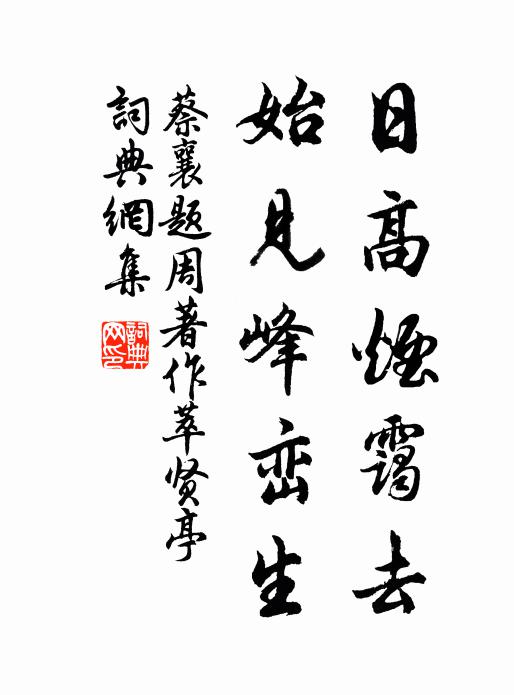 日高煙靄去
始見峰峦生
蔡襄题周著作萃贤亭
詞典網集
詞典
网印